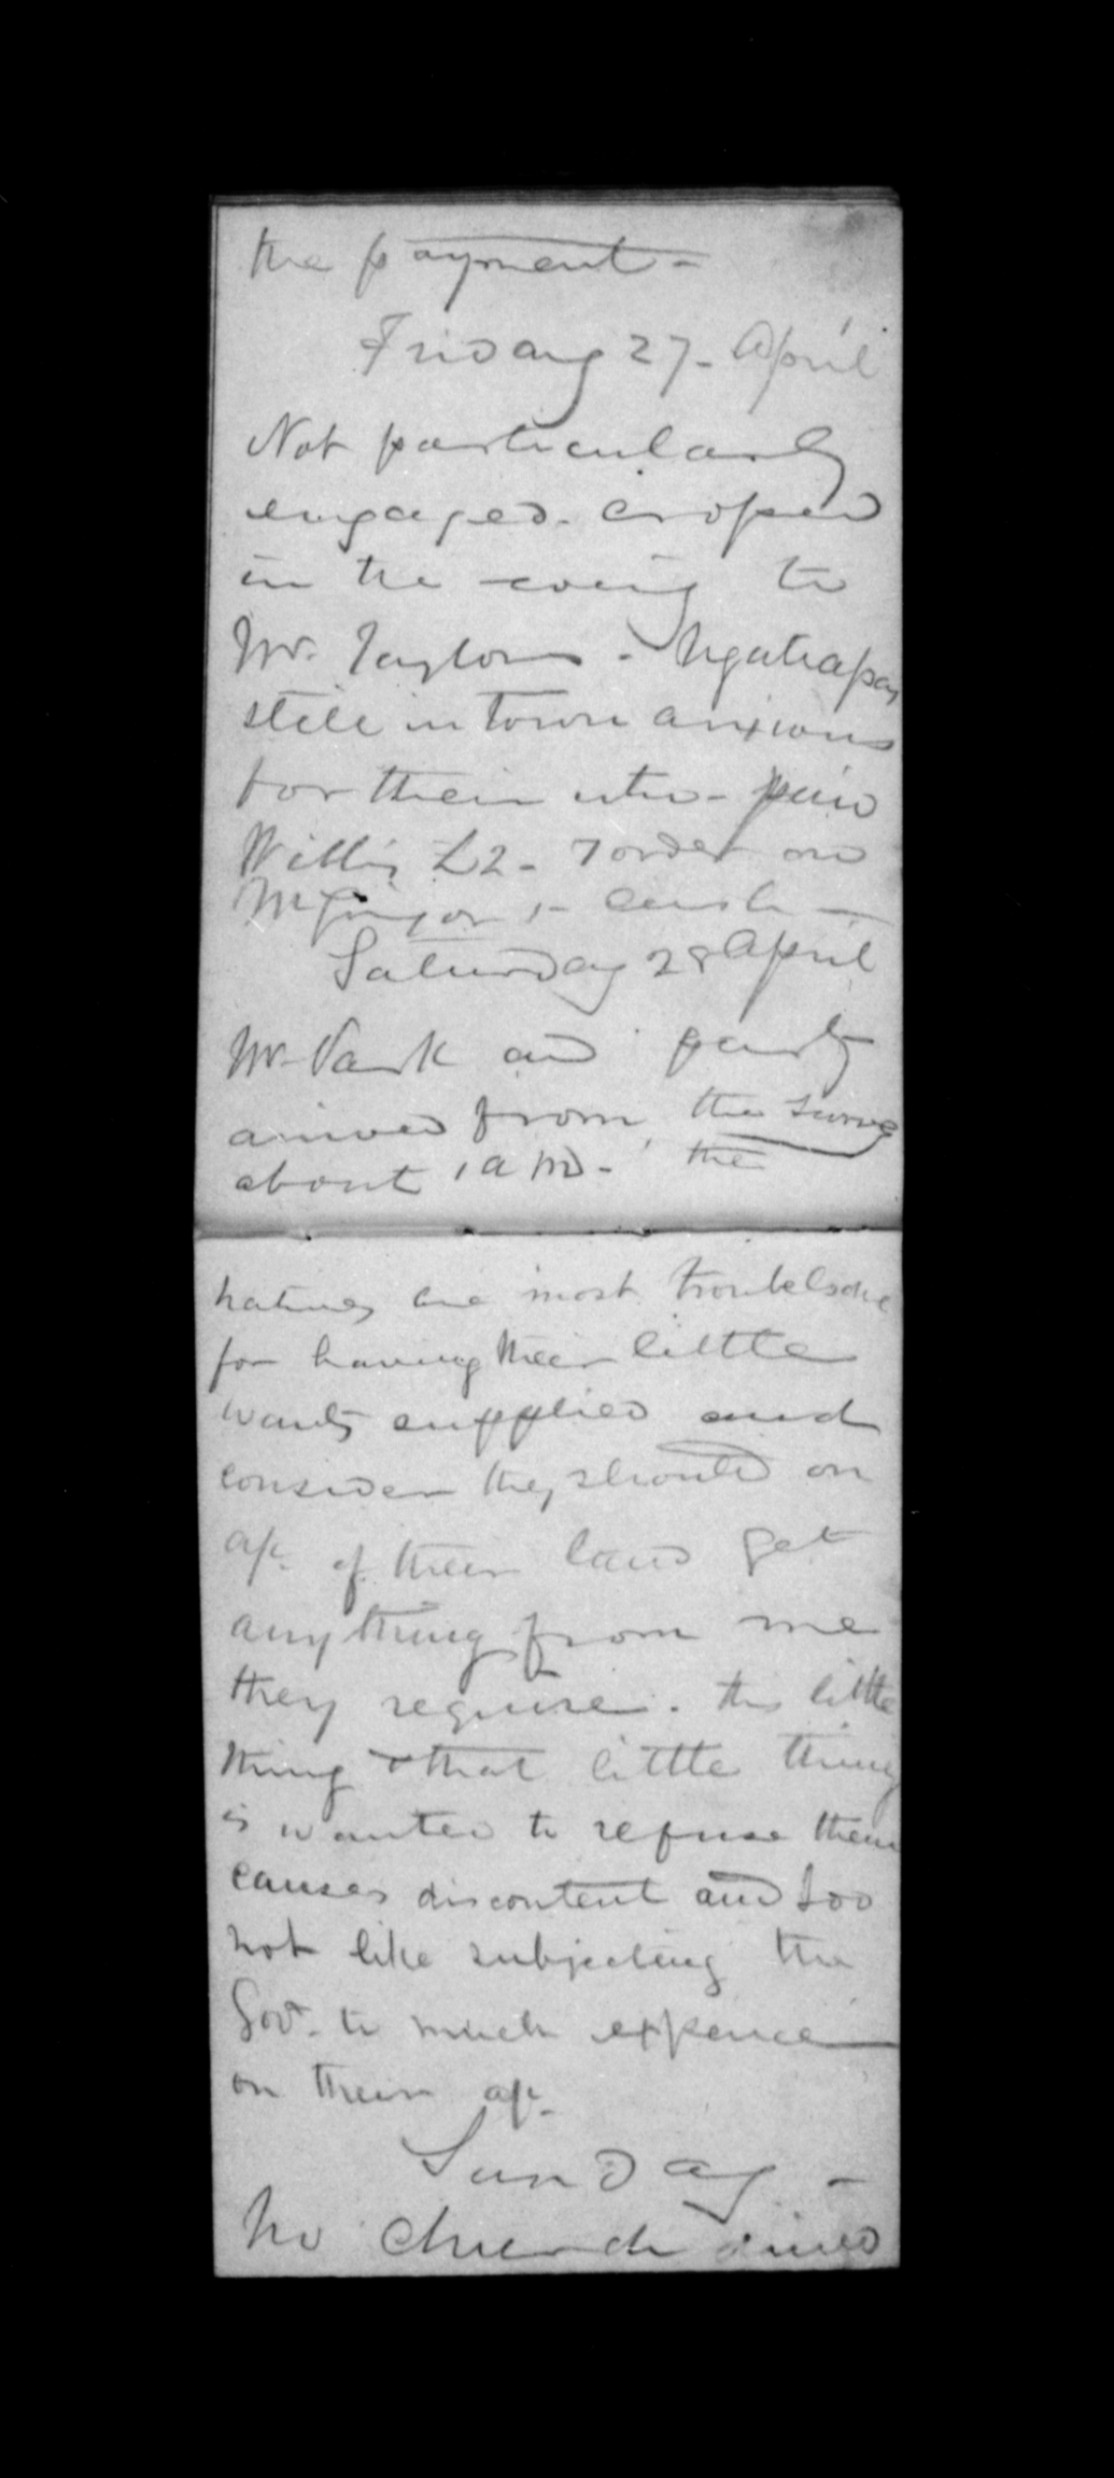 the payment -
Friday 27 - April
Not particularly
engaged. crossed
in the eveing to
Mr. Taylors - Ngatiapa
still in town anxious
for their utu - paid
Willis £2 - order on
McGregor 1 - cash -
Saturday 28 April
Mr. Park and party
arrived from the survey
about 1 a m - the
natives are most troublesome
for having their little
wants supplied and
consider they should on
a/c of their land get
anything from me
they require. this little
thing & that little thing
is wanted to refuse them
causes discontent and I do
not like subjecting the
Govt. to much expence
on their a/c.
Sunday -
No Church dined